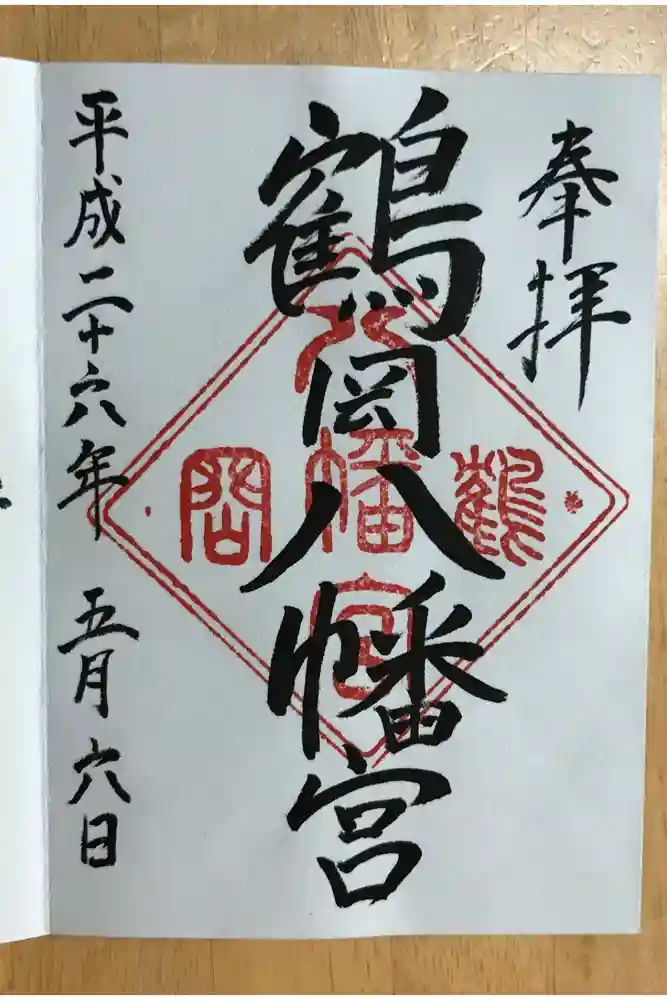 奉拝
鶴岡八幡宮
平成二十六年 五月六日
鶴
八幡宮
岡